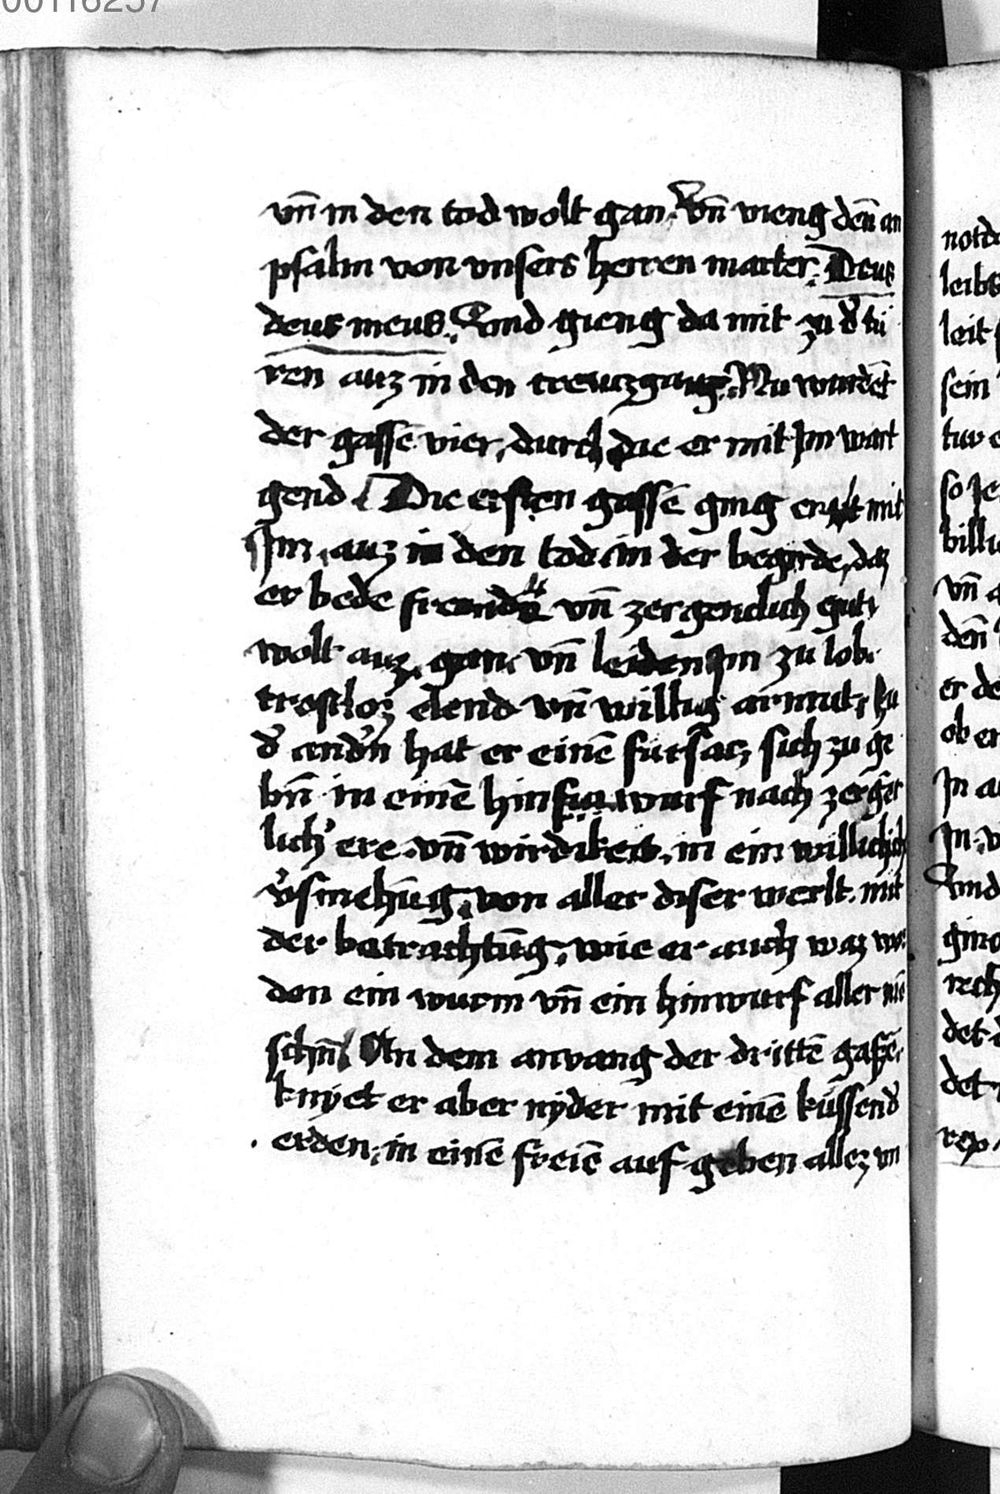 00116257
vn̄ in den tod wolt gan. Vn̄ vieng deñ an
psalm von vnsers herren marter. Deus
deus meus. Vnd gieng da mit zu d' tü
ren auz in den creuczgang. Nu warēt
der gassē vier, durch die er mit Jm wart
gend Die ersten gassē ging er mit
Jm auz in den tod in der begirde, daz
er bede freund vn̄ zergenclich gut
wolt auz gan. vn̄ leiden Jm zu lob
trostloz elend vn̄ willig armut, zu
d' and'n hat er einē fürsacz sich zu ge
bn̄ in einē hinfurwurf nach zerger
lich' ere vn̄ wirdikeit, in ein willichich
v'smehūg von aller diser werlt. mit
der betrachtūg, wie er auch waz wor
den ein wurm vn̄ ein hinwurf aller me
schn̄ An dem anvang der drittē gassē
knyet er aber nyder mit einē küssend'
erden, in einē freiē auf geben allez vn
notd
leibs
leit
sein
tuv
so Je
billi
vn̄ a
den
er de
ob er
Jn a
Jn, v
Vnd
ging
rech
det
det
rep